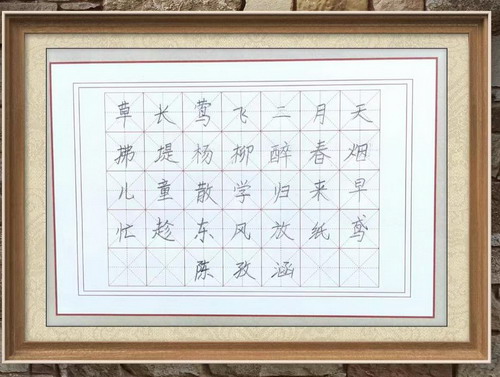 草长莺飞二月天
拂堤杨柳醉春烟
儿童散学归来早
忙趁东风放纸鸢
陈孜涵